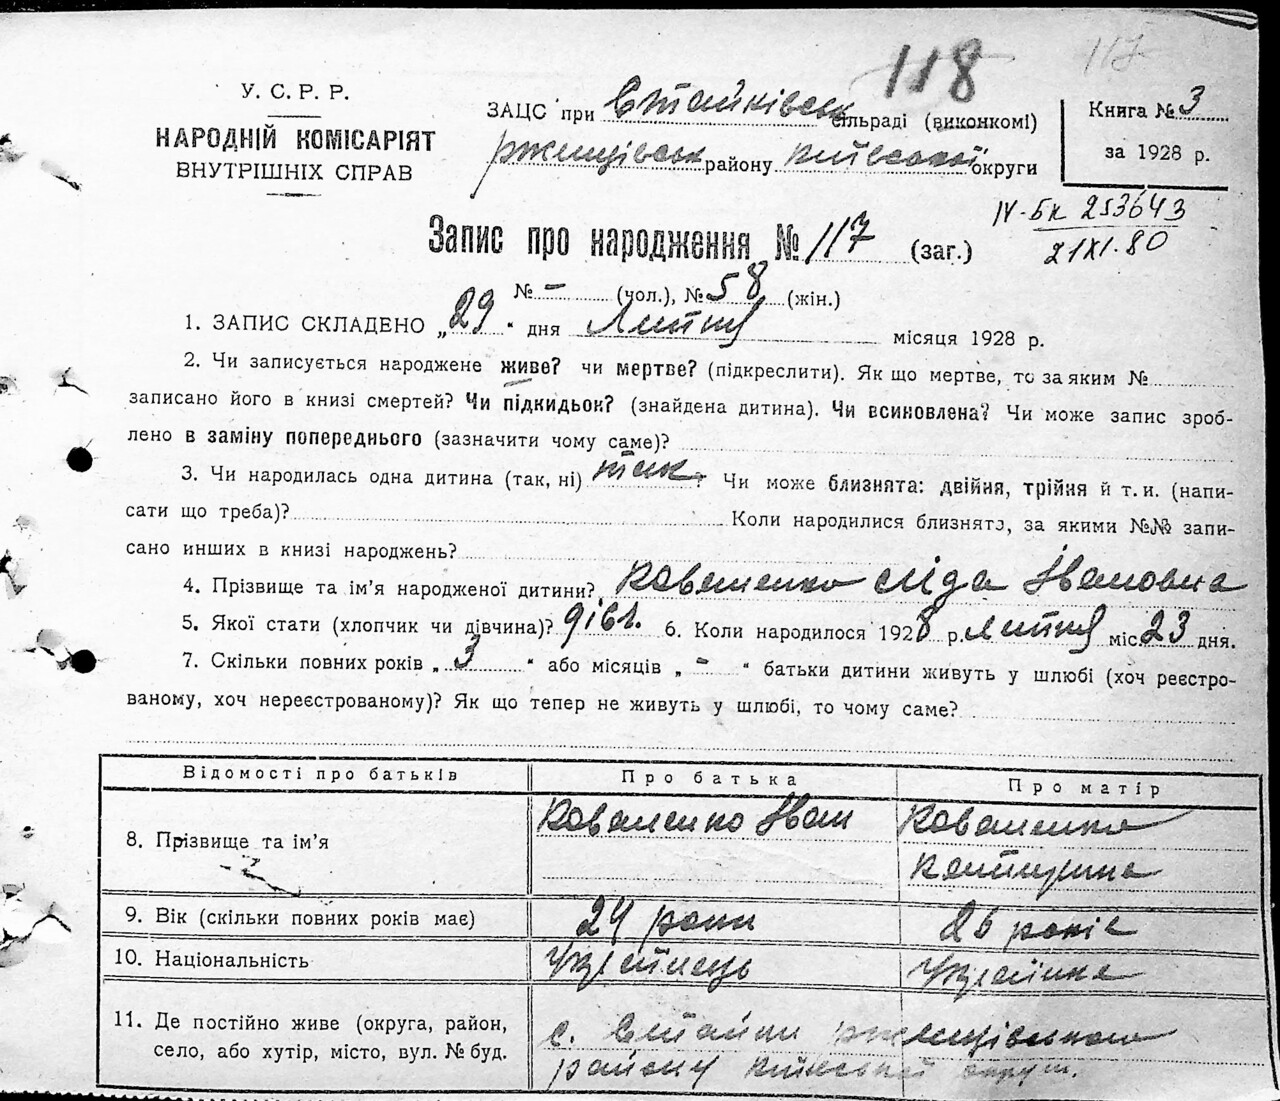 118
117
У. С. Р. Р.
НАРОДНІЙ КОМІСАРІЯТ
ВНУТРІШНІХ СПРАВ
ЗАЦС при Стайківськ сільраді (виконкомі)
ржищівськ району київської округи
Книга № 3
за 1928 р.
IV-БК 253643
21 XI. 80
Запис про народження № 117 (заг.)
№ – (чол.), № 58 (жін.)
1. ЗАПИС СКЛАДЕНО „29“ дня Липня місяця 1928 р.
2. Чи записується народжене живе? чи мертве? (підкреслити). Як що мертве, то за яким №
записано його в книзі смертей? Чи підкидьок? (знайдена дитина). Чи всиновлена? Чи може запис зроб-
лено в заміну попереднього (зазначити чому саме)?
3. Чи народилась одна дитина (так, ні) так? Чи може близнята: двійня, трійня й т. и. (напи-
сати що треба)? Коли народилися близнята, за якими №№ запи-
сано инших в книзі народжень?
4. Прізвище та ім'я народженої дитини? Коваленко Ліда Івановна
5. Якої стати (хлопчик чи дівчина)? дівч. 6. Коли народилося 1928 р. Липня міс. 23 дня.
7. Скільки повних років „ 3 “ або місяців „ – “ батьки дитини живуть у шлюбі (хоч реєстро-
ваному, хоч нереєстрованому)? Як що тепер не живуть у шлюбі, то чому саме?
Відомості про батьків Про батька Про матір
8. Прізвище та ім'я Коваленко Іван Коваленко
Катерина
9. Вік (скільки повних років має) 24 роки 26 років
10. Національність Українець Українка
11. Де постійно живе (округа, район, с. Стайки ржищівського
село, або хутір, місто, вул. № буд. району київської округи.